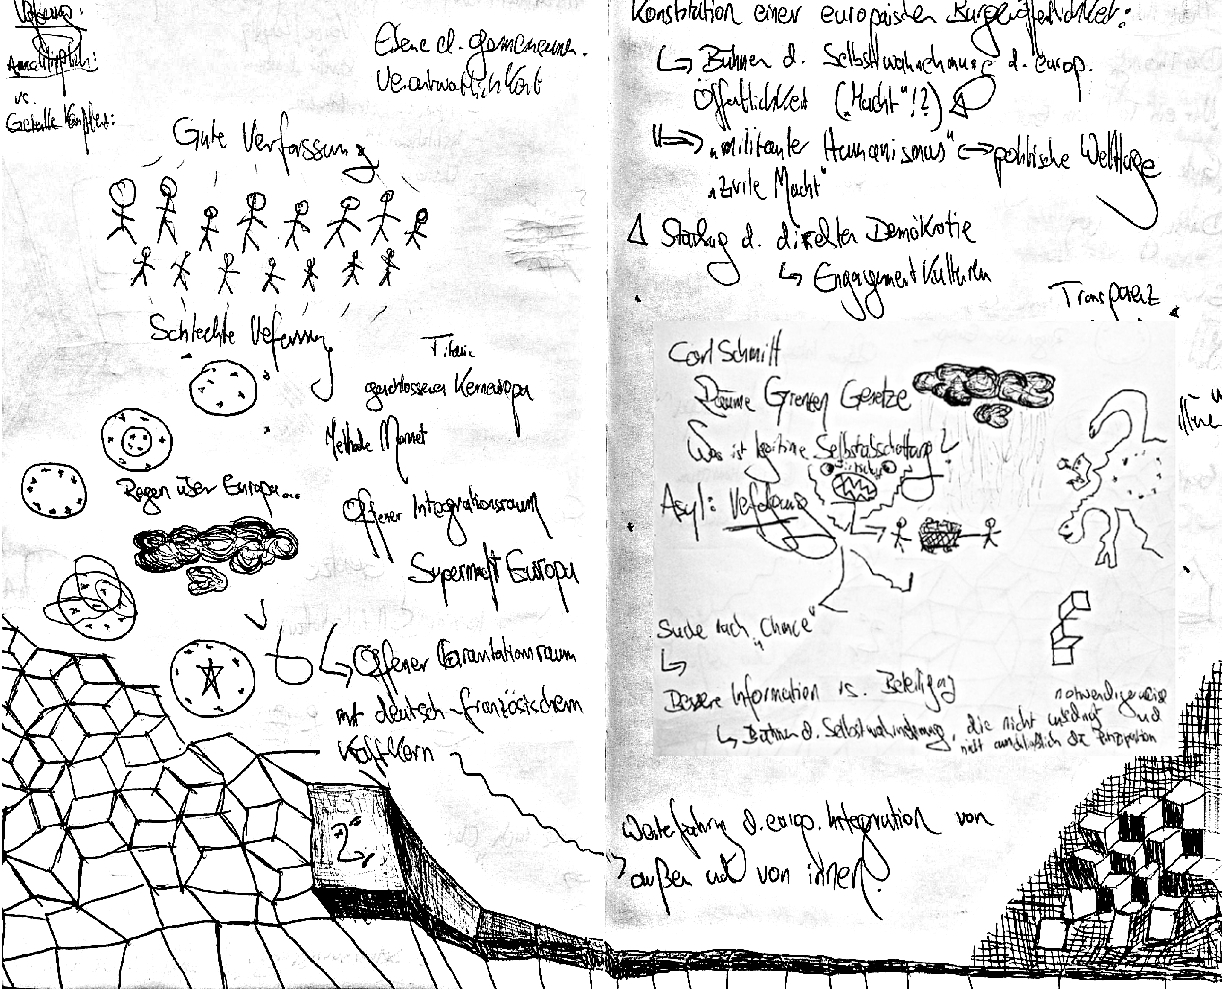 vs.
Ebene d. gemeinsam.
Verantwortlichkeit
Gute Verfassung
Schlechte Verfassung
Titanic
geschlossenes Kerneuropa
Methode Monnet
Regen über Europa...
Offener Integrationsraum
Supermacht Europa
Offener Gravitationsraum
mit deutsch-französischem
Konstitution einer europäischen Bürgeröffentlichkeit:
Bühnen d. Selbstwahrnehmung d. europ.
Öffentlichkeit ("Macht"!?)
"militanter Humanismus" politische Weltlage
"zivile Macht"
Stärkung d. direkten Demokratie
Engagementkulturen
Transparenz
Carl Schmitt
Räume Grenzen Gesetze
Was ist legitime Selbstabschottung?
Asyl: Verfolgung
Suche nach "Chance"
Bessere Information vs. Beteiligung
Bühnen d. Selbstwahrnehmung, die nicht unbedingt
notwendigerweise und
nicht ausschließlich die Partizipation
Weiterführung d. europ. Integration von
außen und von innen?